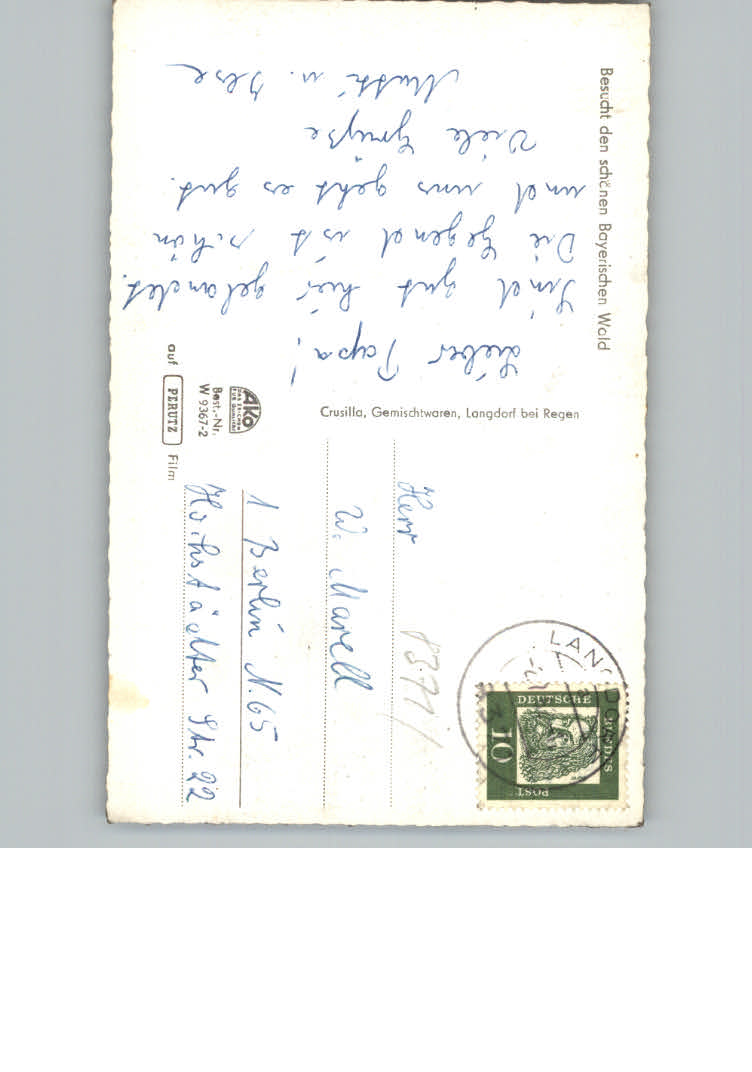 Besucht den schönen Bayerischen Wald
Lieber Papa!
Sind gut hier gelandet.
Die Gegend ist schön
und uns geht es gut.
Viele Grüße
Mutti u.
Crusilla, Gemischtwaren, Langdorf bei Regen
AKO
DAS ZEICHEN
FÜR QUALITÄT
Best.-Nr.
W 9367-2
auf PERUTZ Film
LANGDO
DEUTSCHE
BUNDES
POST
10
8371
Herr
W. Marell
1 Berlin N.65
Hochstädter Str. 22